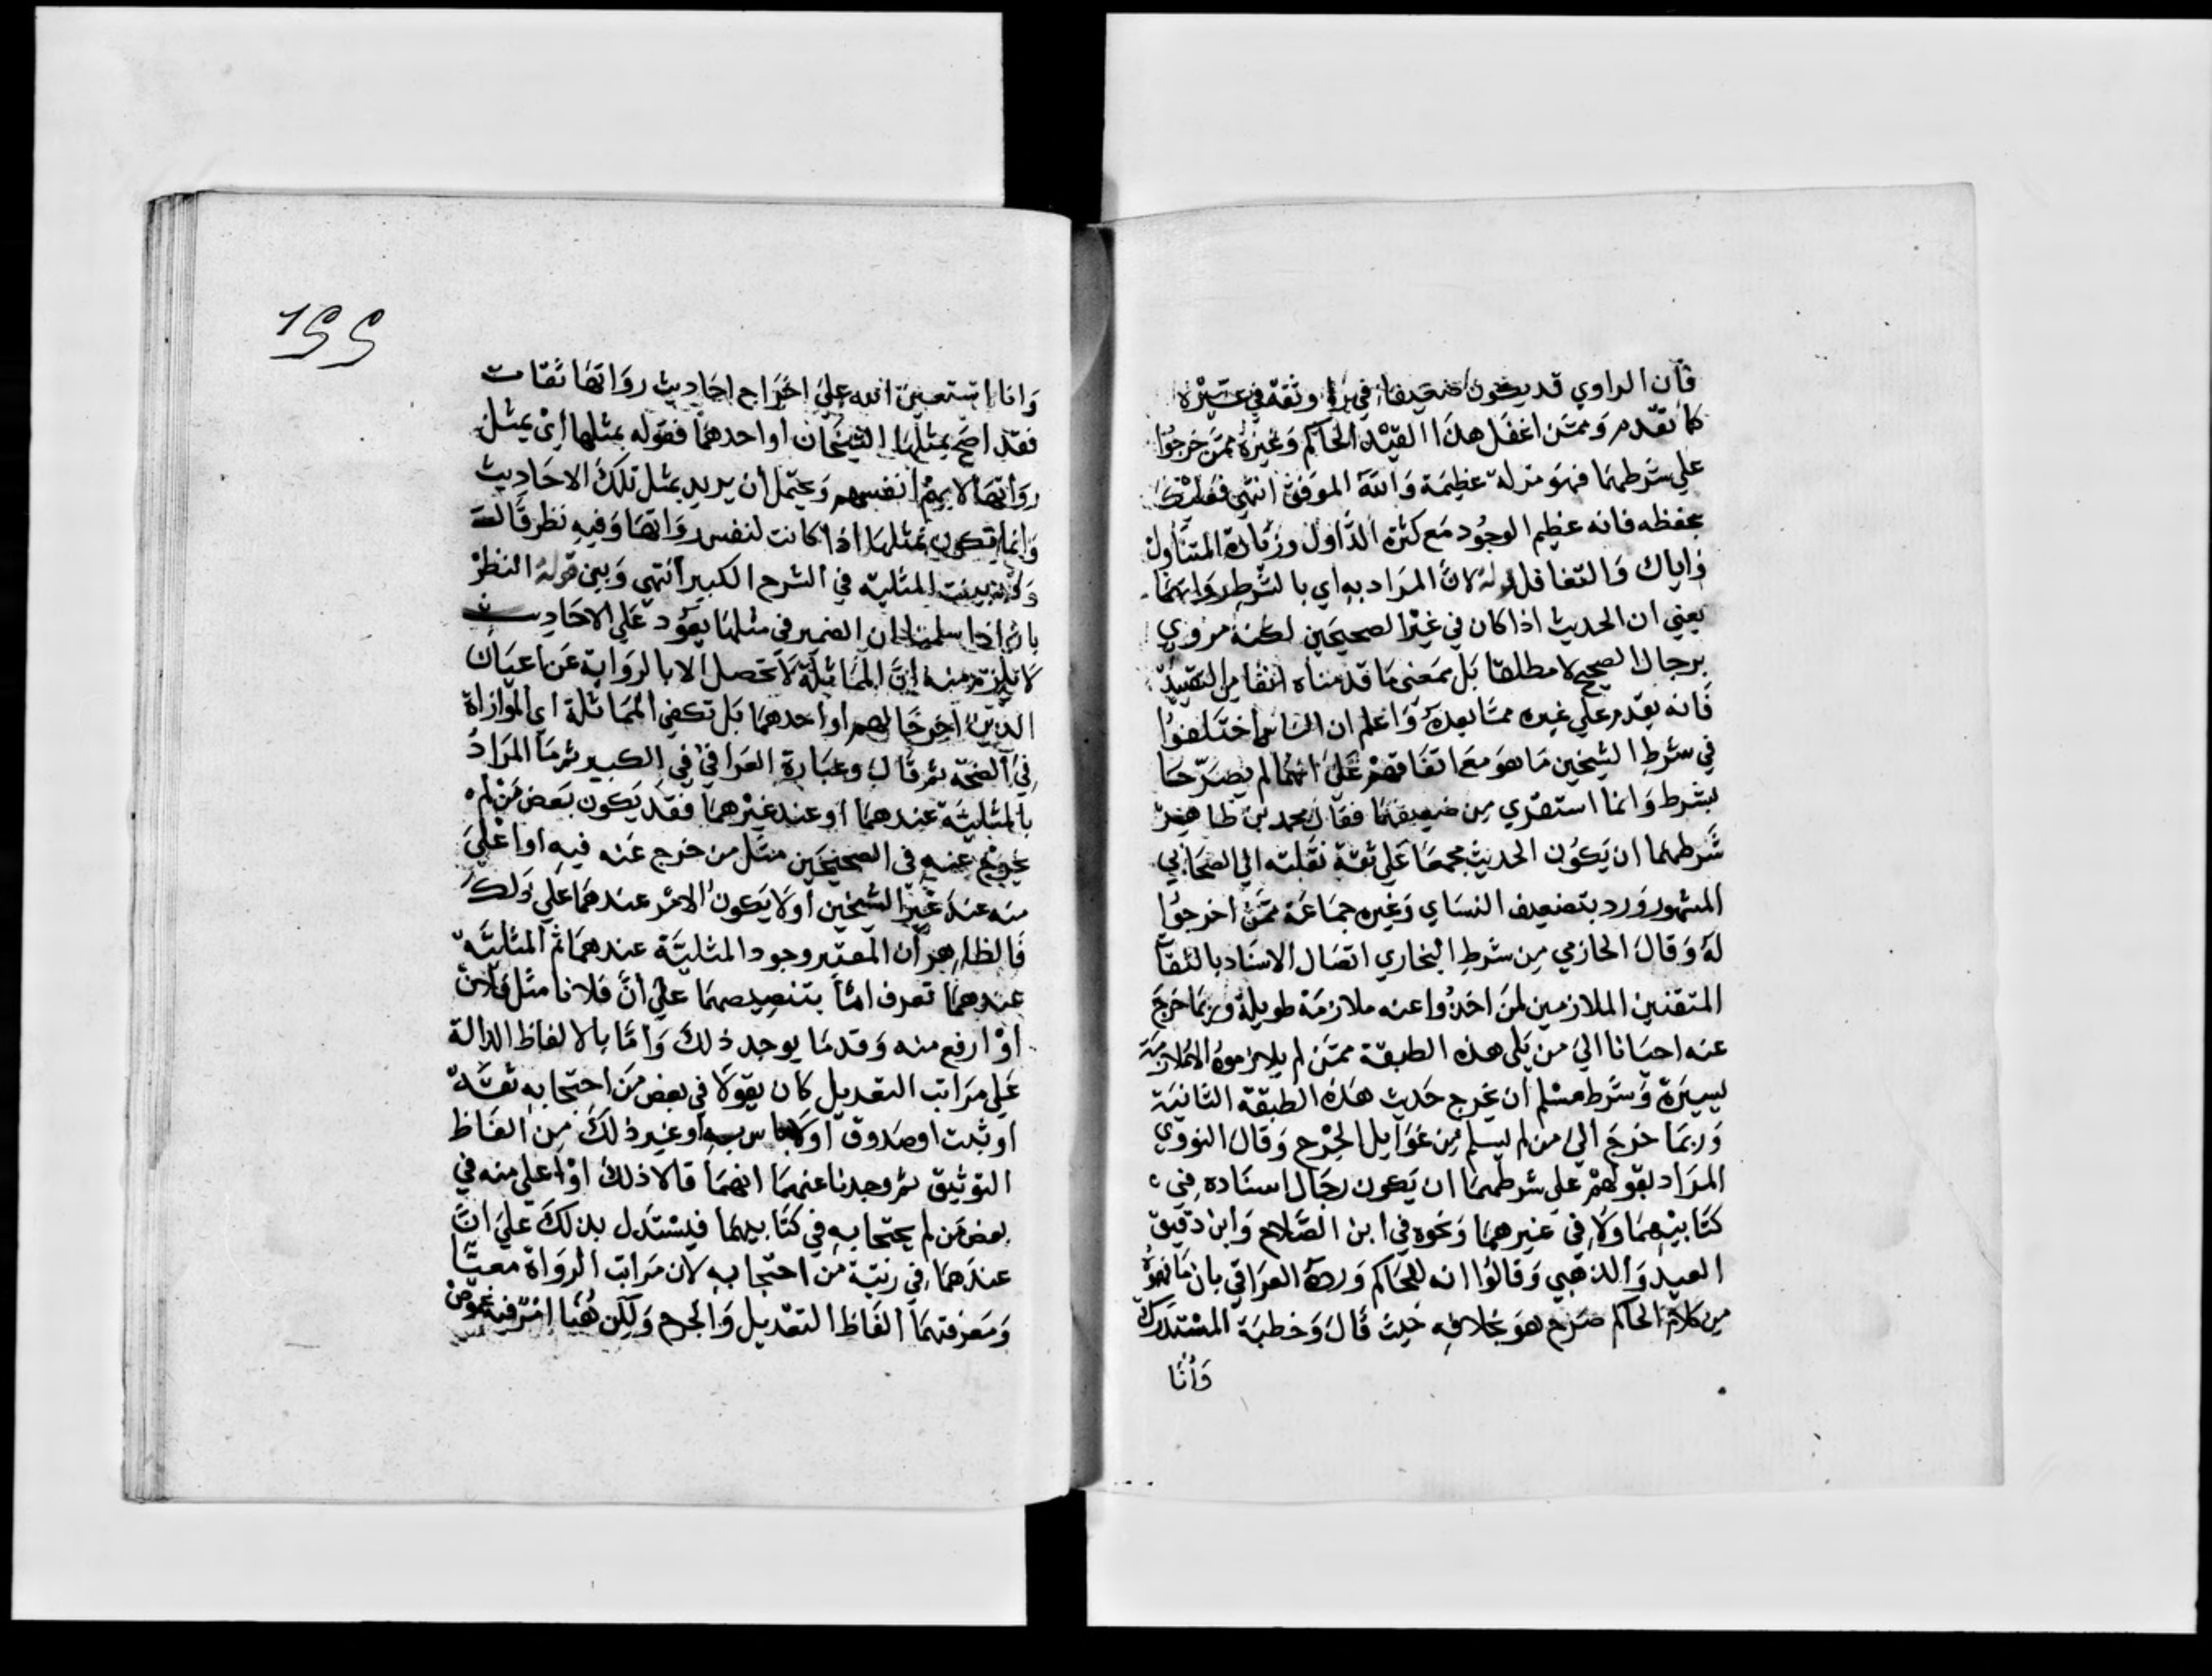 فان الراوي قد يكون ضعيفا في راو وثقة في غيره
كما تقدم وممن اغفل هذا القيد الحاكم وغيره ممن خرجوا
علي شرطهما فهو مزلة عظيمة والله الموفق انتهي فعليك
بحفظه فانه عظيم الوجود مع كثرة التداول وزيادة المتناول
واياك والتغافل قوله لان المراد به اي بالشرط رواتهما
يعني ان الحديث اذا كان في غير الصحيحين لكنه مروي
برجال الصحيح لا مطلقا بل بمعنى ما قدمناه انفا من التقييد
فانه يقدم علي غيره مما بعده واعلم ان الناس اختلفوا
في شرط الشيخين ما هو مع اتفاقهم علي انهما لم يصرحا
بشرط وانما استقري من صنيعهما فقال محمد بن طاهر
شرطهما ان يكون الحديث مجمعا علي ثقة نقلته الي الصحابي
المشهور ورد بتضعيف النساي وغيره جماعة ممن اخرجوا
له وقال الحازمي من شرط البخاري اتصال الاسناد بالثقات
المتقنين الملازمين لمن اخذوا عنه ملازمة طويلة وربما خرج
عنه احيانا الي من يلي هذه الطبقة ممن لم يلازموه الا ملازمة
يسيرة وشرط مسلم ان يخرج حديث هذه الطبقة الثانية
وربما خرج الي من لم يسلم من غوايل الجرح وقال النووي
المراد بقولهم علي شرطهما ان يكون رجال اسناده في
كتابيهما ولا في غيرهما ونحوه في ابن الصلاح وابن دقيق
العيد والذهبي وقالوا انه للحاكم ورده العراقي بان ما فهموه
من كلام الحاكم صرح هو بخلافه حيث قال وخطبة المستدرك
وانا
١٢٢
وانا استعين الله علي اخراج احاديث رواتها ثقات
فقد احتج بمثلها الشيخان او احدهما فقوله بمثلها اي بمثل
رواتها لا بهم انفسهم ويحتمل ان يريد بمثل تلك الاحاديث
وانما تكون بمثلها اذا كانت لنفس رواتها وفيه نظر قالت
وقد بينت المثلية في الشرح الكبير انتهي وبين قوله النظر
بان اذا سلمنا ان الضمير في مثلها يعود علي الاحاديث
لا يلزم منه ان المماثلة لا تحصل الا بالرواية عن اعيان
الذين اخرجا لهم او احدهما بل تكفي المماثلة اي الموازاة
في الصحة ثم قال وعبارة العراقي في الكبير ثم ما المراد
بالمثلية عندهما او عند غيرهما فقد يكون بعض من لم
يخرج عنه في الصحيحين مثل من خرج عنه فيه او اعلي
منه عند غير الشيخين او لا يكون الامر عندهما علي ذلك
فالظاهر ان المعتبر وجود المثلية عندهما ثم المثلية
عندهما تعرف اما بتنصيصهما علي ان فلانا مثل فلان
او ارفع منه وقد ما يوجد ذلك واما بالالفاظ الدالة
علي مراتب التعديل كان يقولا في بعض من احتجا به ثقة
او ثبت او صدوق او لا باس به او غير ذلك من الفاظ
التوثيق ثم وجدنا عنهما انهما قالا ذلك او اعلي منه في
بعض من لم يحتجا به في كتابيهما فيستدل بذلك علي ان
عندهما في رتبة من احتجا به لان مراتب الرواة معيا
ومعرفتهما الفاظ التعديل والجرح ولكن هنا امر فيه غموض